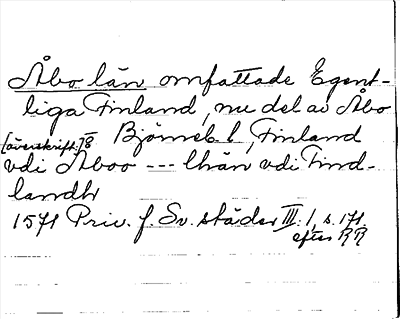 Åbo län omfattade Egent-
liga Finland, nu del av Åbo
Björneb. l, Finland
[överskrift:]
vdi Åboo --- lhän vdi Find-
landh
1571 Priv. f. Sv. städer III:1, s. 171
efter RR